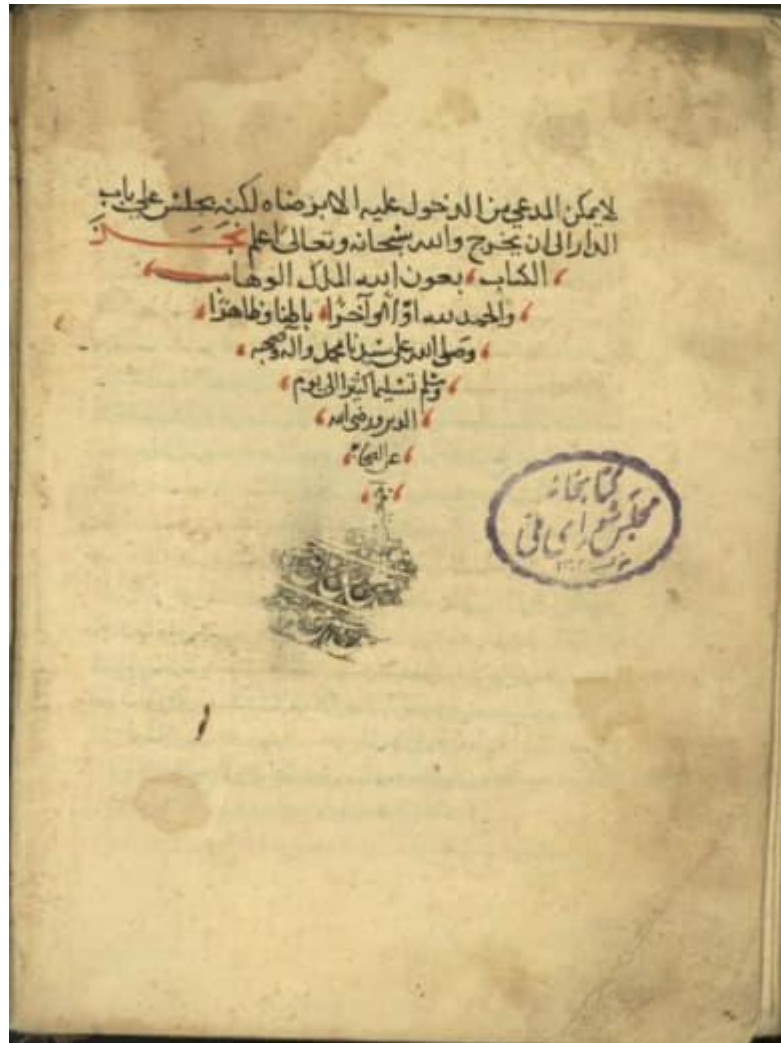 لا يمكن المدعي من الدخول عليه الا برضاه لكنه يجلس على باب
الدار الى ان يخرج والله سبحانه وتعالى اعلم نجز
الكتاب بعون الله الملك الوهاب
والحمد لله اولا وآخرا باطنا وظاهرا
وصلى الله على سيدنا محمد وآله وصحبه
وسلم تسليما كثيرا الى يوم
الدين ورضي الله
عن الصحابة
كتابخانه
مجلس شورای ملی